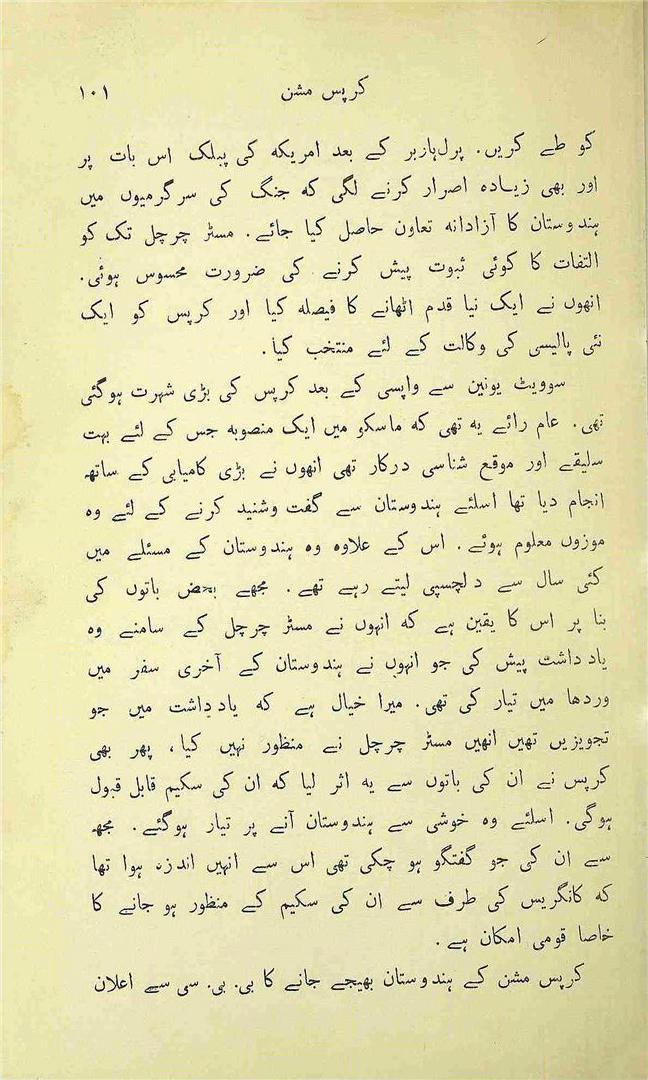 کرپس مشن ۱۰۱
کو طے کریں. پرل‌ہاربر کے بعد امریکہ کی پبلک اس بات پر
اور بھی زیادہ اصرار کرنے لگی کہ جنگ کی سرگرمیوں میں
ہندوستان کا آزادانہ تعاون حاصل کیا جائے. مسٹر چرچل تک کو
التفات کا کوئی ثبوت پیش کرنے کی ضرورت محسوس ہوئی.
انھوں نے ایک نیا قدم اٹھانے کا فیصلہ کیا اور کرپس کو ایک
نئی پالیسی کی وکالت کے لئے منتخب کیا.
سوویٹ یونین سے واپسی کے بعد کرپس کی بڑی شہرت ہوگئی
تھی. عام رائے یہ تھی کہ ماسکو میں ایک منصوبہ جس کے لئے بہت
سلیقے اور موقع شناسی درکار تھی انھوں نے بڑی کامیابی کے ساتھ
انجام دیا تھا اسلئے ہندوستان سے گفت وشنید کرنے کے لئے وہ
موزوں معلوم ہوئے. اس کے علاوہ وہ ہندوستان کے مسئلے میں
کئی سال سے دلچسپی لیتے رہے تھے. مجھے بعض باتوں کی
بنا پر اس کا یقین ہے کہ انہوں نے مسٹر چرچل کے سامنے وہ
یادداشت پیش کی جو انہوں نے ہندوستان کے آخری سفر میں
وردھا میں تیار کی تھی. میرا خیال ہے کہ یادداشت میں جو
تجویزیں تھیں انھیں مسٹر چرچل نے منظور نہیں کیا، پھر بھی
کرپس نے ان کی باتوں سے یہ اثر لیا کہ ان کی سکیم قابل قبول
ہوگی. اسلئے وہ خوشی سے ہندوستان آنے پر تیار ہوگئے. مجھ
سے ان کی جو گفتگو ہو چکی تھی اس سے انہیں اندزہ ہوا تھا
کہ کانگریس کی طرف سے ان کی سکیم کے منظور ہو جانے کا
خاصا قومی امکان ہے.
کرپس مشن کے ہندوستان بھیجے جانے کا بی. بی. سی سے اعلان